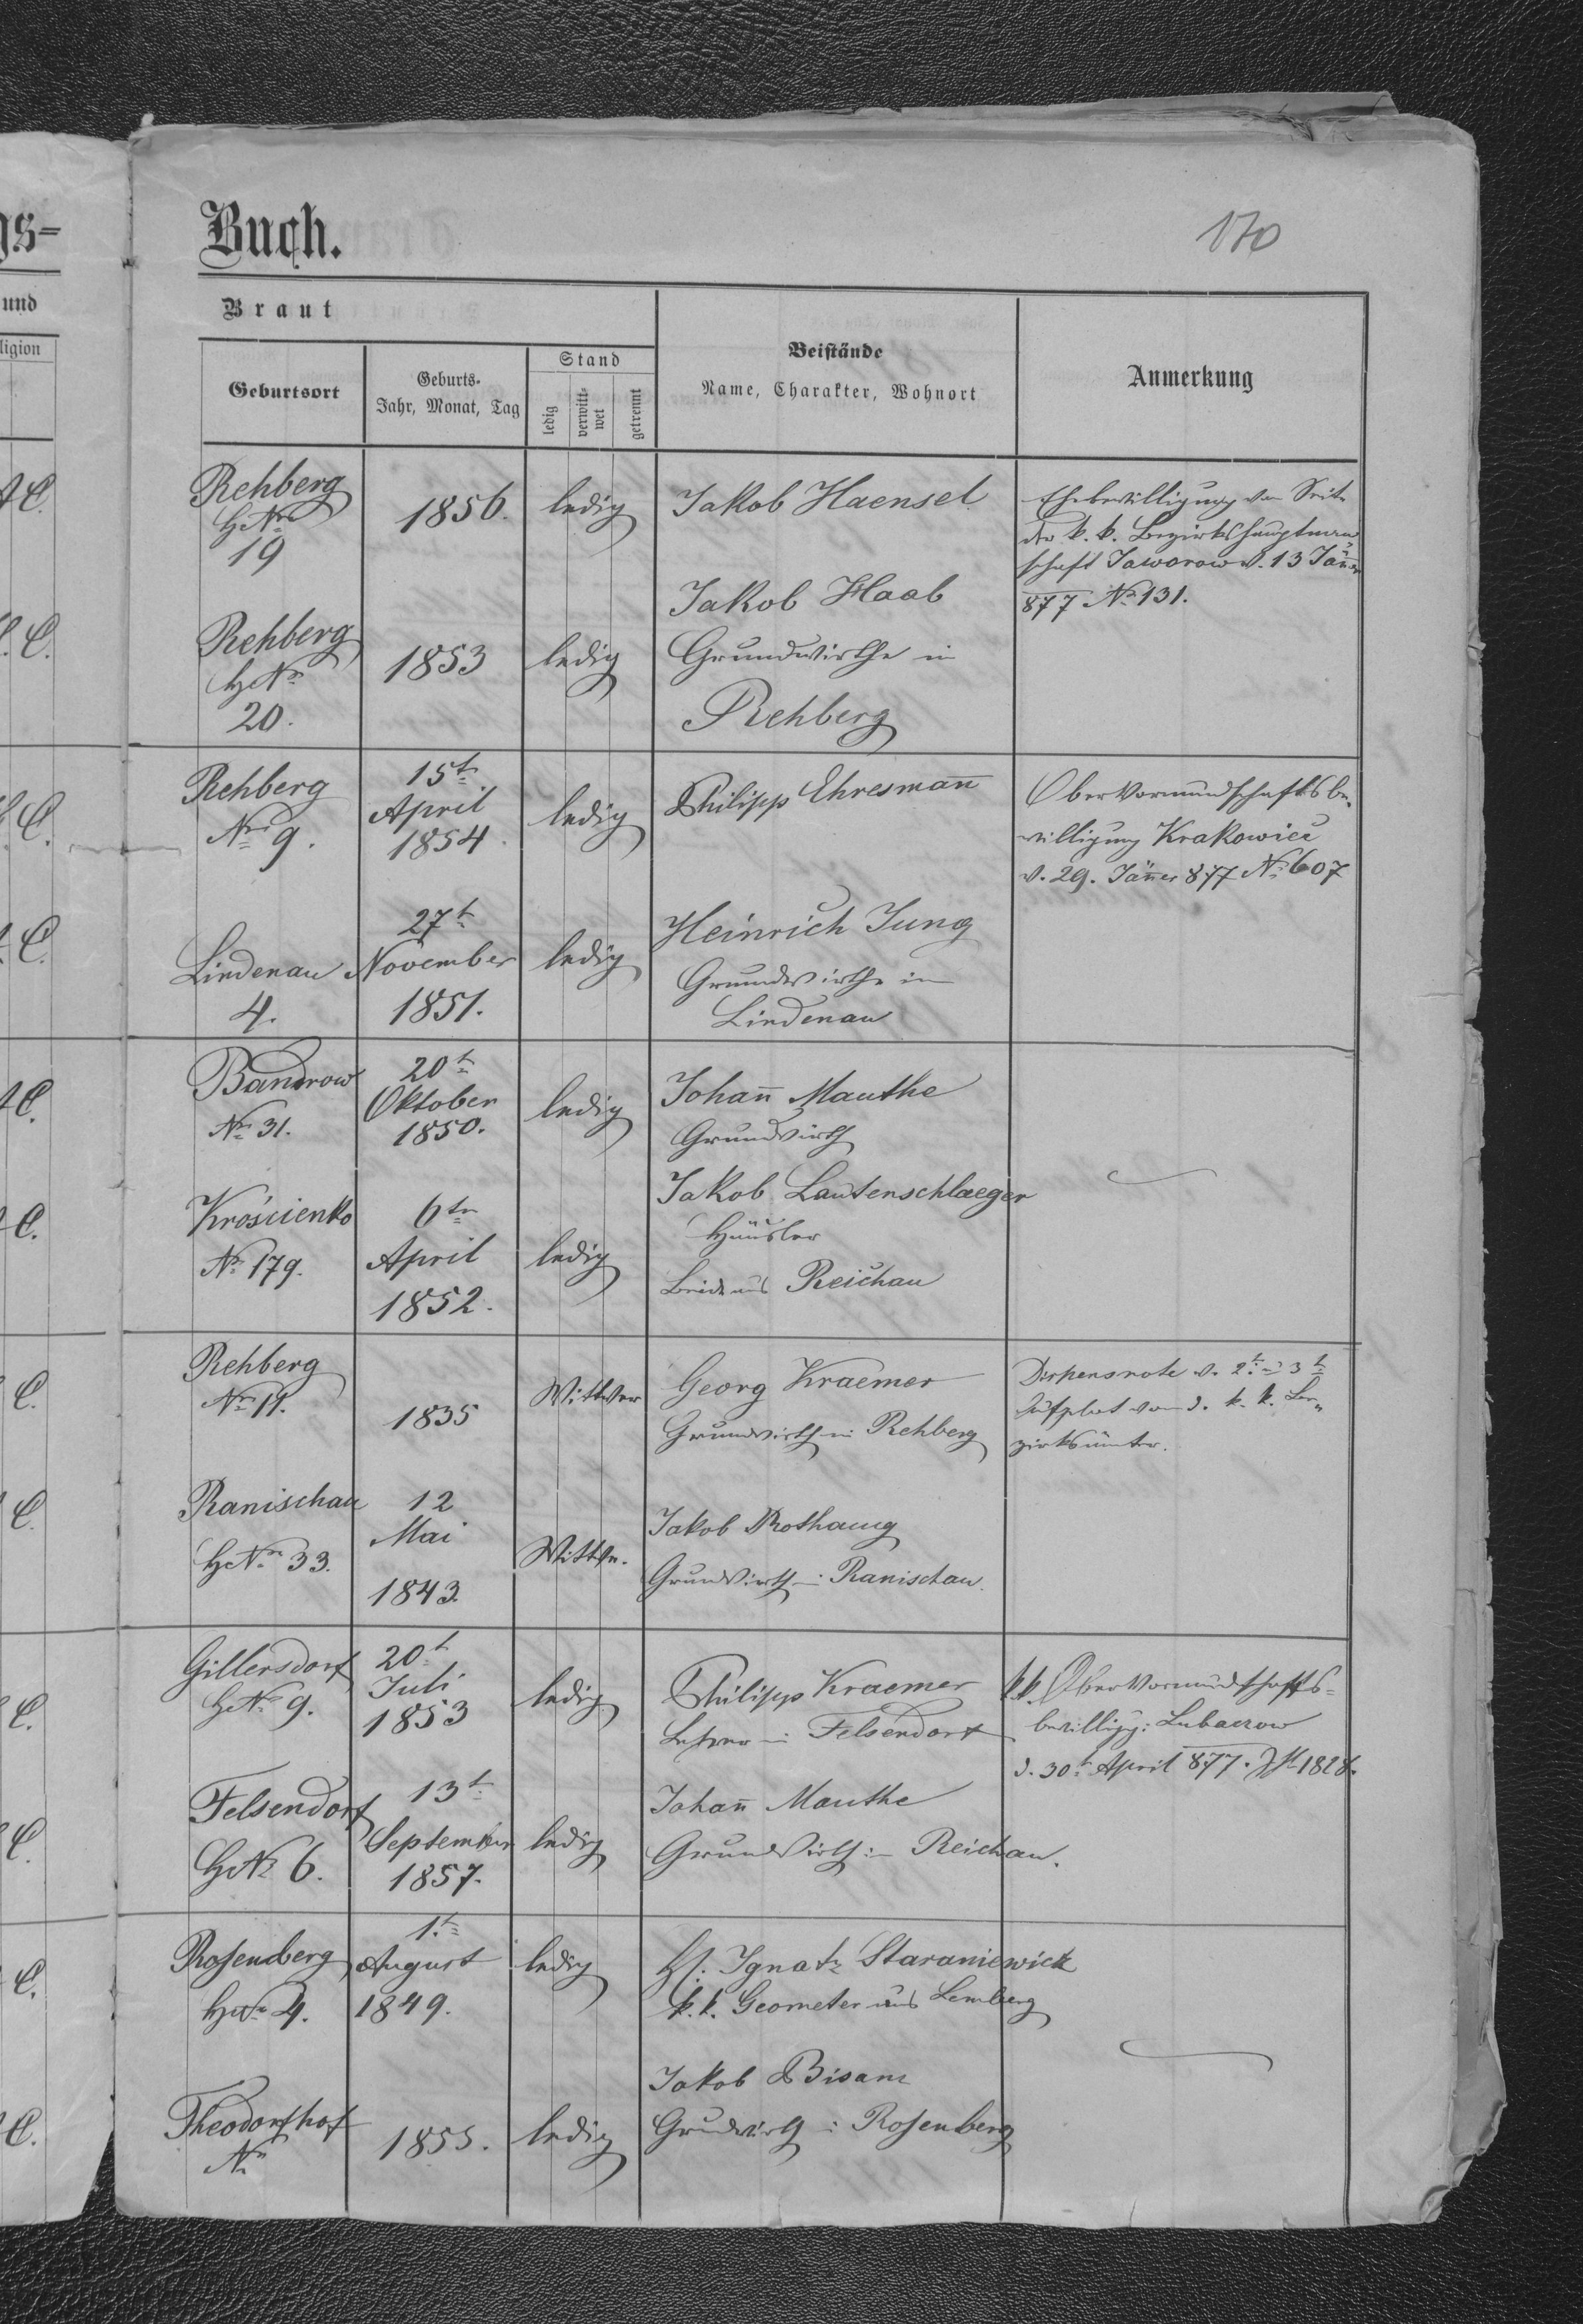 gs=
Buch.
170
und
ligion
Braut
Geburtsort
Geburts-
Jahr, Monat, Tag
Stand
ledig
verwitt-
wet
getrennt
Beistände
Name, Charakter, Wohnort
Anmerkung
Rehberg
HNr
19
1856.
ledig
Jakob Haensel
Ehebewilligung von Seite
der k. k. Bezirkshauptman
schaft Jaworow v. 13 Jäner
877 Nr 131.
Rehberg
HNr
20.
1853
ledig
Jakob Haab
Grundwirthe in
Rehberg
Rehberg
Nr 9.
15t
April
1854.
ledig
Philipp Ehresman̄
Obervormundschaftsbe-
willigung Krakowiec
v. 29. Jäner 877 Nr 607
Lindenau
4.
27t
November
1851.
ledig
Heinrich Jung
Grundwirthe in
Lindenau
Bandrow
Nr 31.
20t
Oktober
1850.
ledig
Johan̄ Mauthe
Grundwirth
Krościenko
Nr 179.
6tn
April
1852.
ledig
Jakob Lautenschlaeger
Häusler
Beide aus Reichau
Rehberg
Nr 11.
1835
Wittwer
Georg Kraemer
Grundwirth in Rehberg
Dispensnote v. 2t 3t
Aufgebot von d. k. k. Be-
zirksämter.
Ranischau
HNr 33.
12
Mai
1843.
Wittw.
Jakob Rothaug
Grundwirth in Ranischau.
Gillersdorf
HNr 9.
20t
Juli
1853
ledig
Philipp Kraemer
Lehrer in Felsendorf
k.k. Obervormundschafts-
bewilligg: Lubaczow
d. 30t April 877. 1828.
Felsendorf
HNr 6.
13t
September
1857.
ledig
Johan̄ Mauthe
Grundwirth in Reichau.
Rosenberg
HNr 4.
1.t
August
1849.
ledig
H. Ignatz Staraniewicz
k.k. Geometer aus Lemberg
Theodorshof
Nr
1855.
ledig
Jakob Bisanz
Grundwirth in Rosenberg